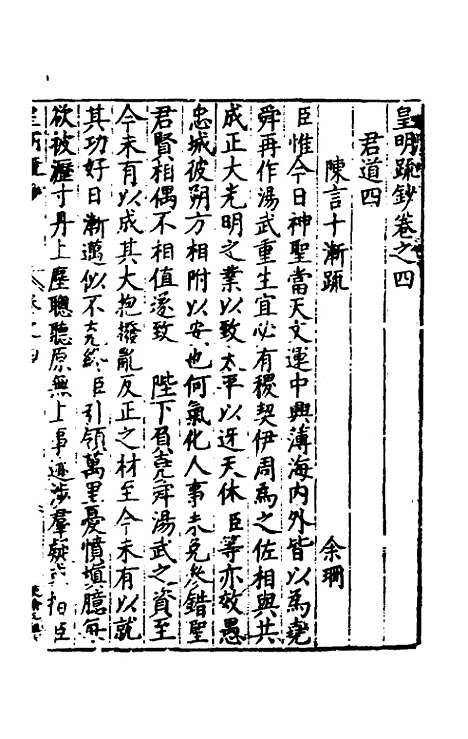 皇明疏鈔卷之四
君道四
陳言十漸疏 余珊
臣惟今日神聖當天文運中興薄海內外皆以為堯
舜再作湯武重生宜必有稷契伊周為之佐相與共
成正大光明之業以致太平以迓天休臣等亦效愚
忠城彼朔方相附以安也何氣化人事未免參錯聖
君賢相偶不相值遂致 陛下負堯舜湯武之資至
今未有以成其大抱撥亂反正之材至今未有以就
其功好日漸邁似不克終臣引領萬里憂憤填臆每
欲披瀝寸丹上塵聰聽原無上事迹涉羣疑 臣